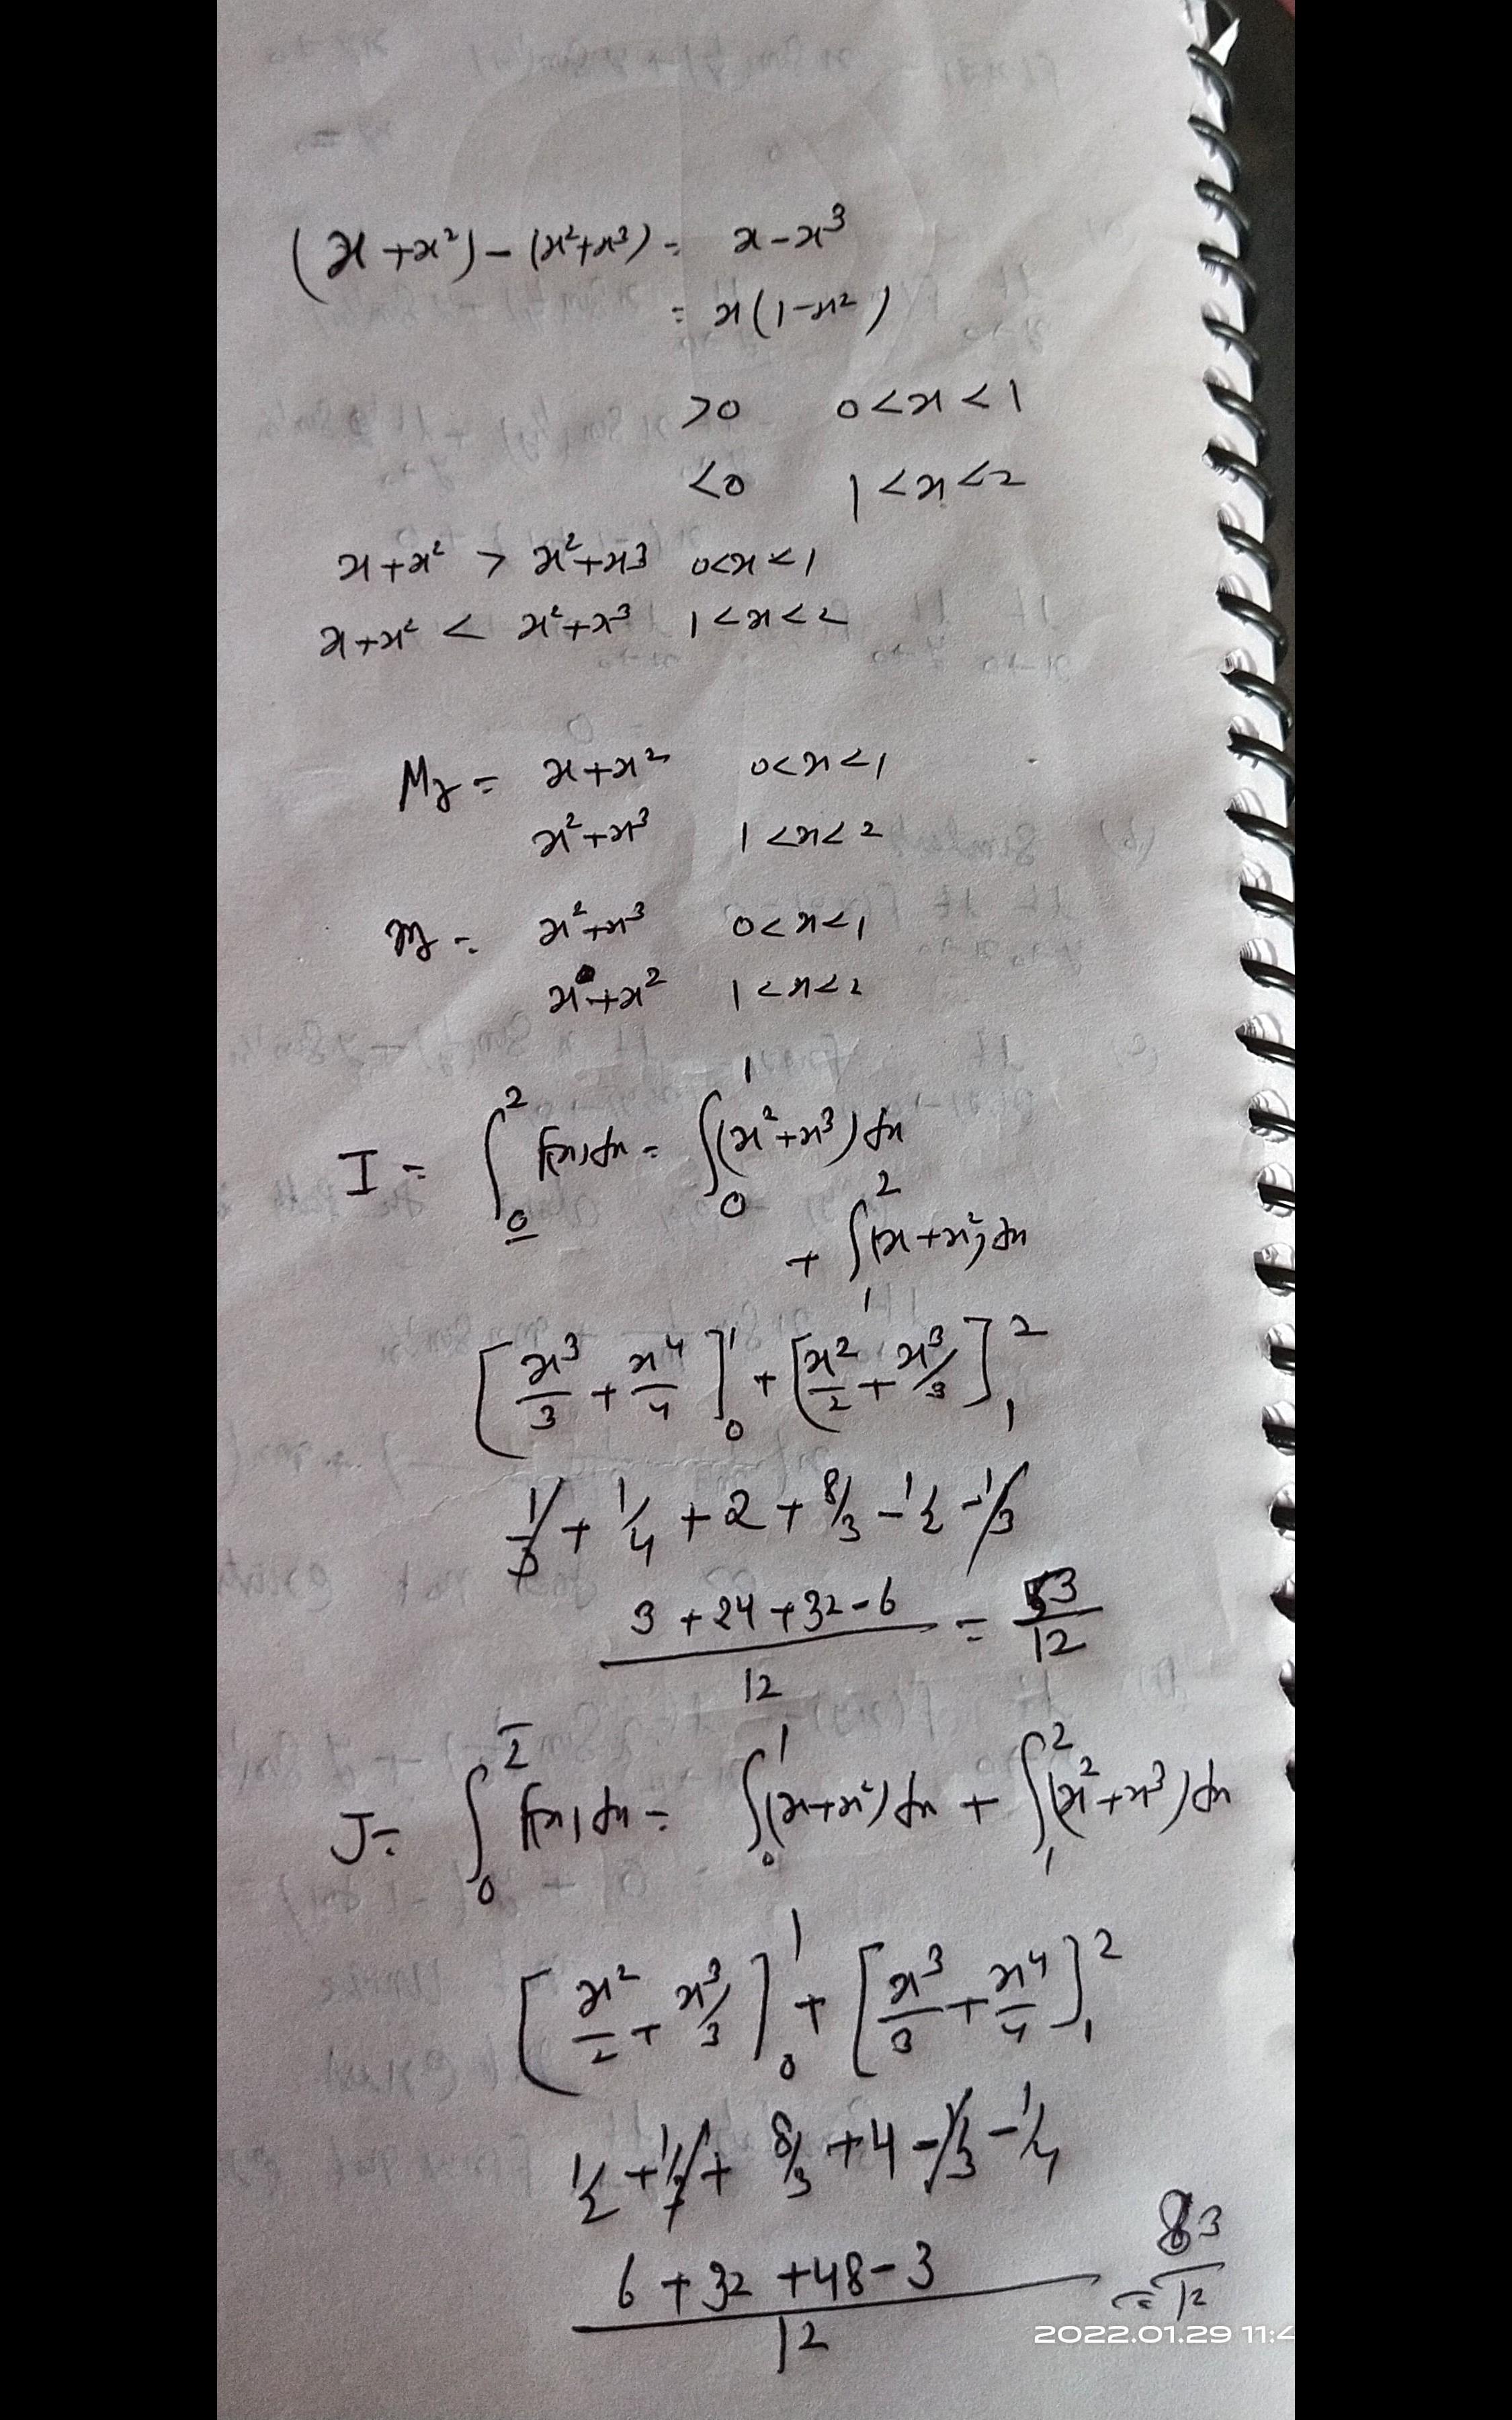 (x + x²) - (x²+x³) = x - x³
= x(1-x²)
>0 0<x<1
<0 1<x<2
x+x² > x²+x3 0<x<1
x+x² < x²+x³ 1<x<2
Mr = x+x² 0<x<1
x²+x³ 1<x<2
mr = x²+x³ 0<x<1
x+x² 1<x<2
I = ∫₀² f(x)dx = ∫₀¹(x²+x³)dx
+ ∫₁²(x+x²)dx
[x³/3 + x⁴/4]₀¹ + [x²/2 + x³/3]₁²
1/3 + 1/4 + 2 + 8/3 - 1/2 - 1/3
(3+24+32-6)/12 = 53/12
J = ∫₀² f(x)dx = ∫₀¹(x+x²)dx + ∫₁²(x²+x³)dx
[x²/2 + x³/3]₀¹ + [x³/3 + x⁴/4]₁²
1/2 + 1/3 + 8/3 + 4 - 1/3 - 1/4
(6+32+48-3)/12 = 83/12
2022.01.29 11:4